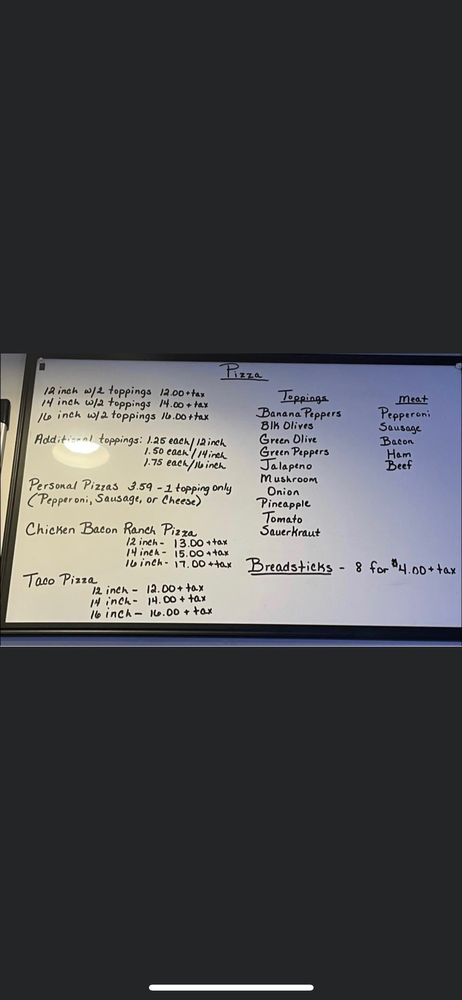 Pizza
12 inch w/2 toppings 12.00+tax
14 inch w/2 toppings 14.00+tax
16 inch w/2 toppings 16.00+tax
Additional toppings: 1.25 each/12inch
1.50 each/14inch
1.75 each/16inch
Personal Pizzas 3.59 - 1 topping only
(Pepperoni, Sausage, or Cheese)
Chicken Bacon Ranch Pizza
12 inch - 13.00 +tax
14 inch - 15.00 +tax
16 inch - 17.00 +tax
Taco Pizza
12 inch - 12.00 + tax
14 inch - 14.00 + tax
16 inch - 16.00 + tax
Toppings
Banana Peppers
Blk Olives
Green Olive
Green Peppers
Jalapeno
Mushroom
Onion
Pineapple
Tomato
Sauerkraut
Meat
Pepperoni
Sausage
Bacon
Ham
Beef
Breadsticks - 8 for $4.00 + tax